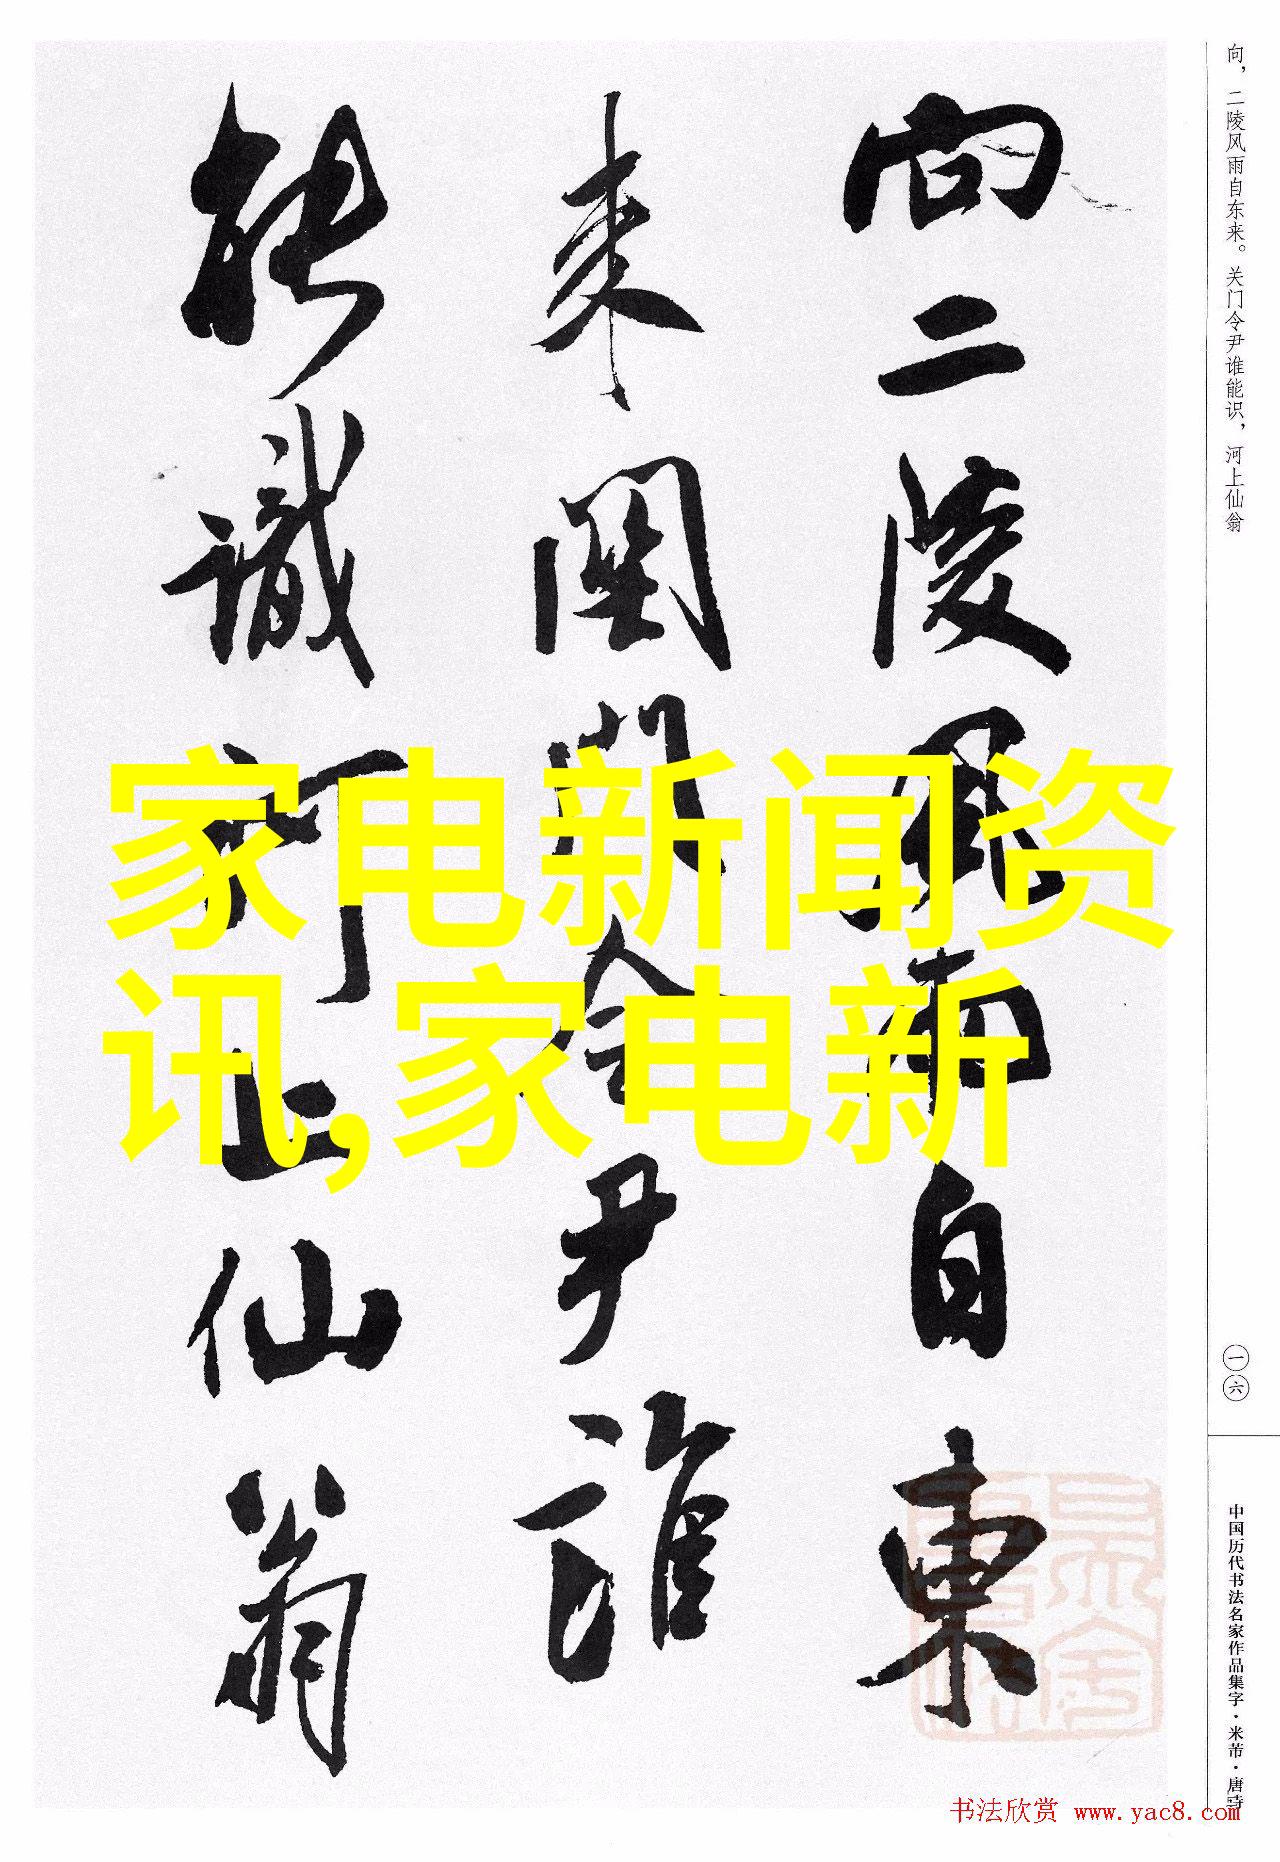 向二陵風雨自東
来關門令尹誰
能識河上仙翁
家电新闻资
讯,家电新
向，二陵风雨自东来。关门令尹谁能识，河上仙翁
一六
中国历代书法名家作品集字·米芾·唐诗
书法欣赏 www.yac8.com